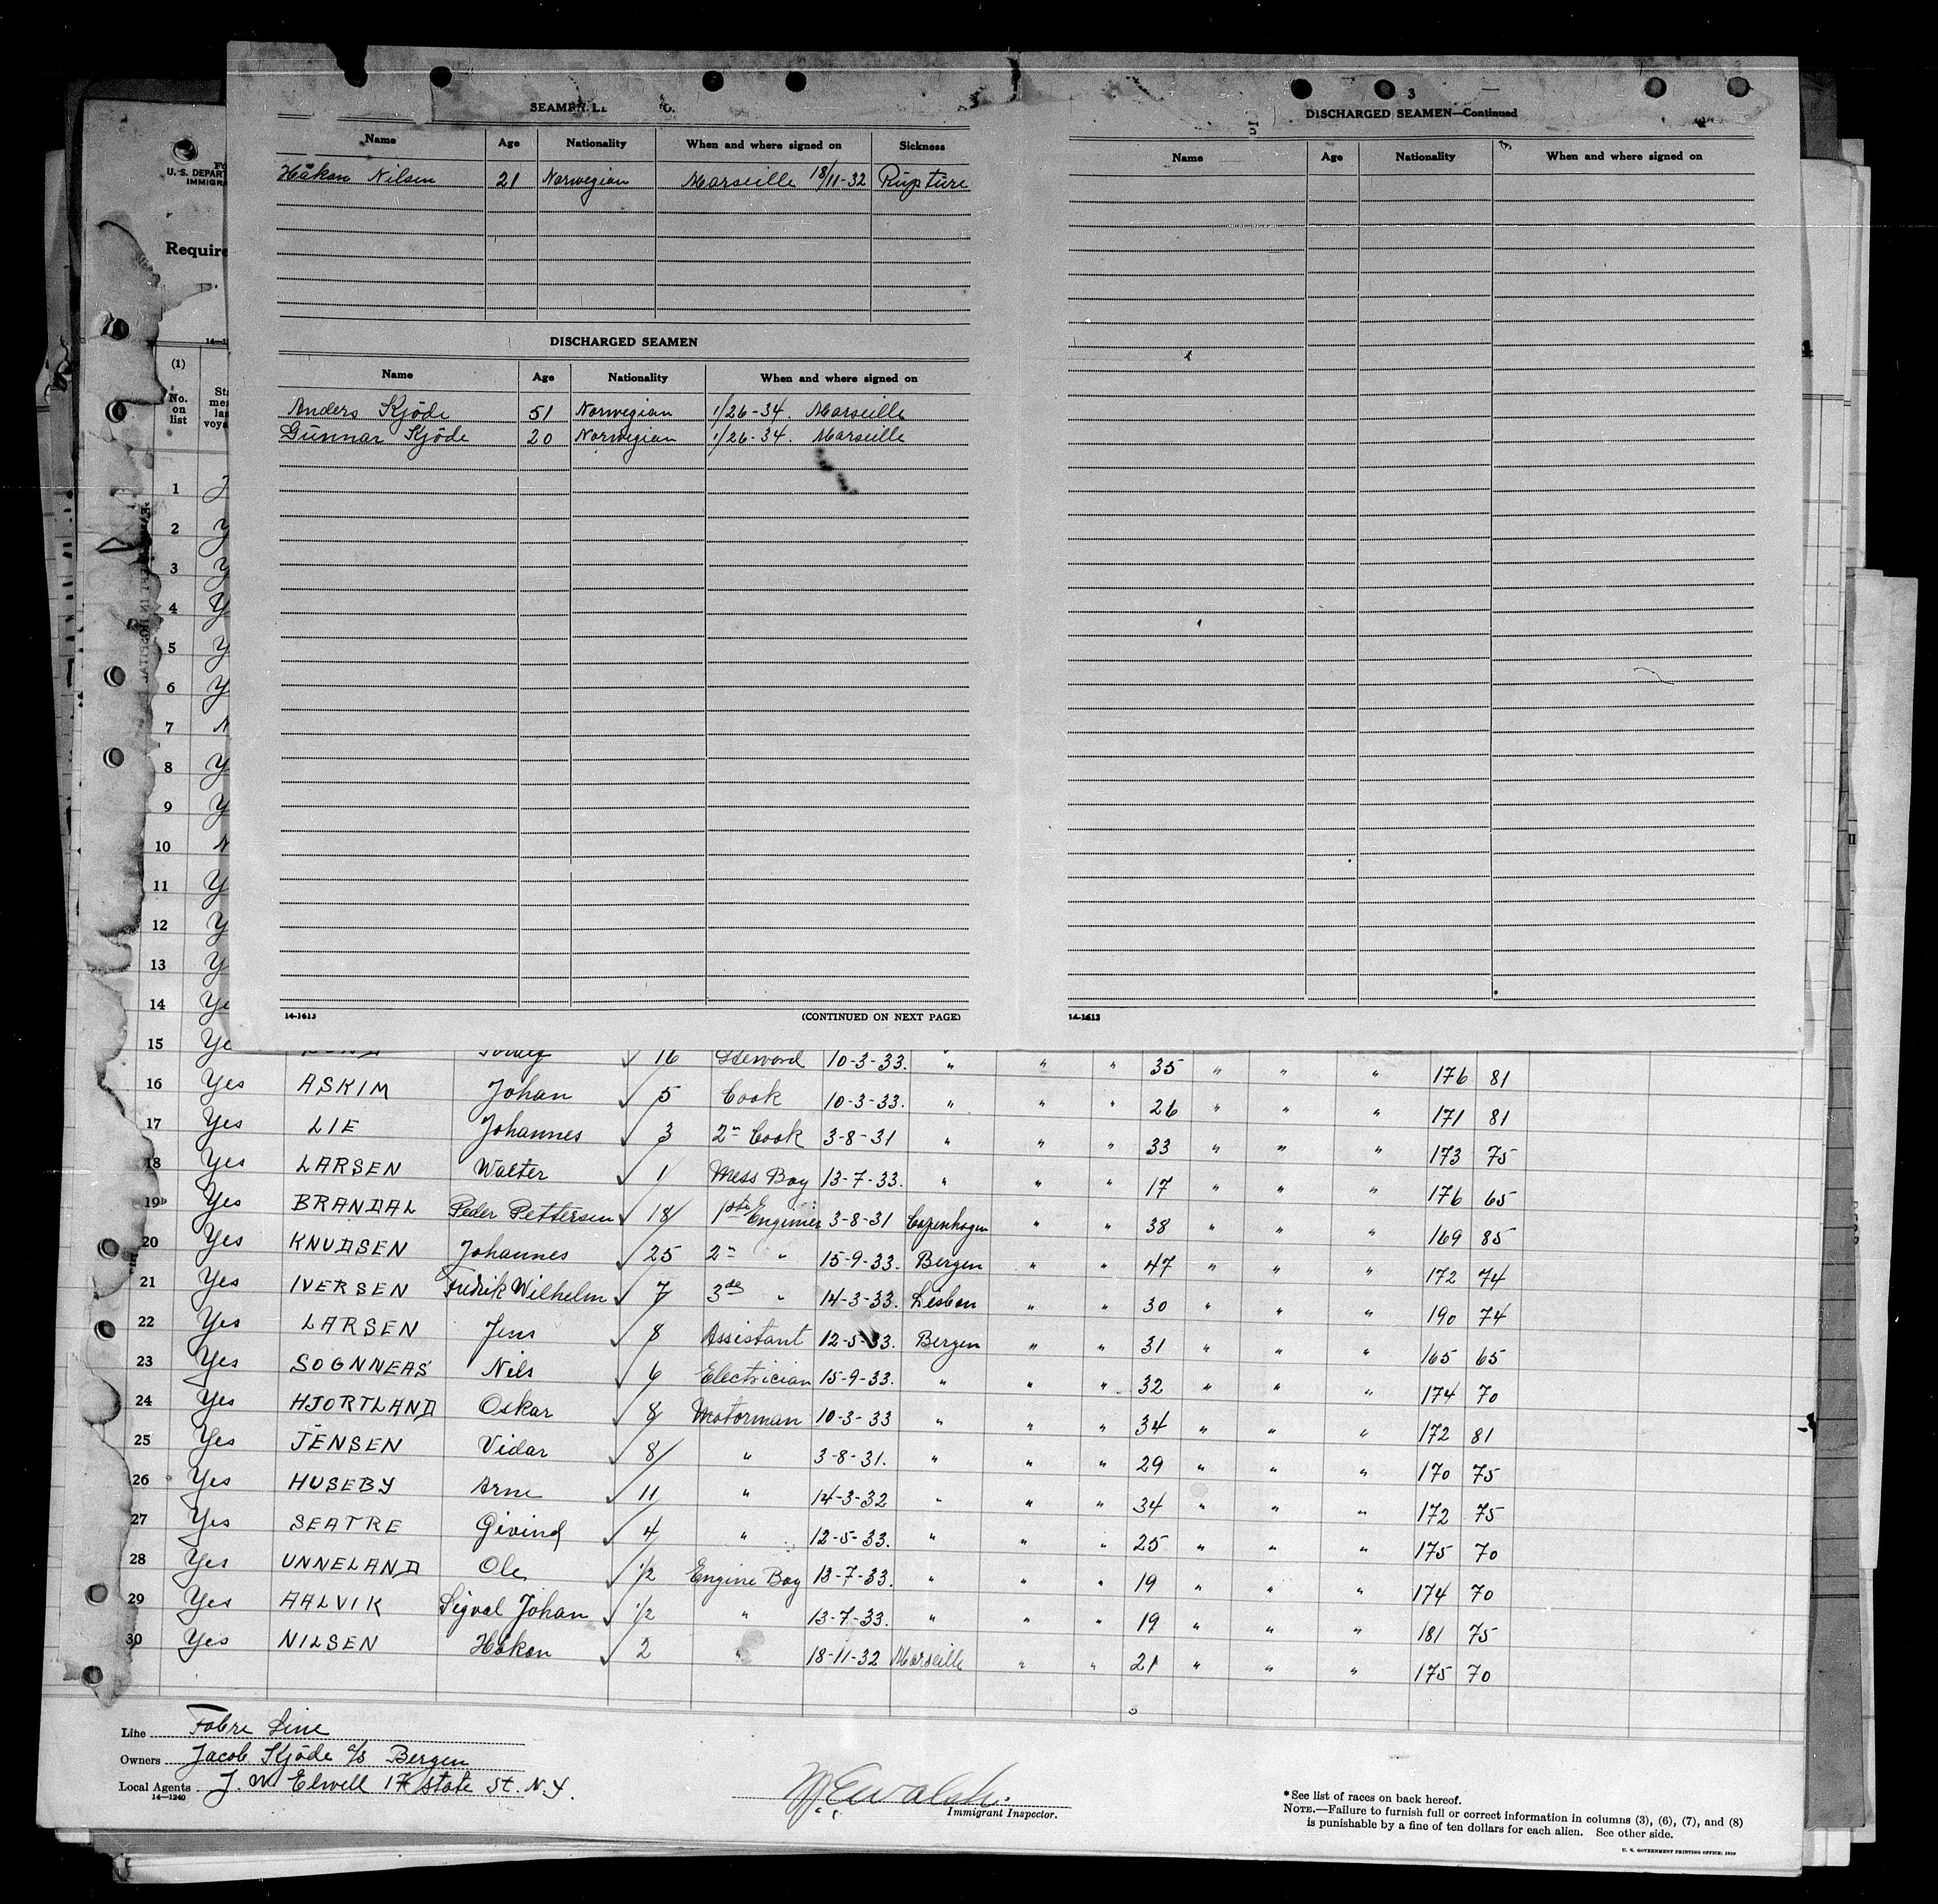 SEAMEN LE
Name Age Nationality When and where signed on Sickness
Håkon Nilsen 21 Norwegian Marseille 18/11-32 Rupture
DISCHARGED SEAMEN
Name Age Nationality When and where signed on
Anders Kjöde 51 Norwegian 1/26-34. Marseille
Gunnar Kjöde 20 Norwegian 1/26-34. Marseille
14-1613 (CONTINUED ON NEXT PAGE)
3
DISCHARGED SEAMEN—Continued
Name Age Nationality When and where signed on
14-1613
U. S. DEPART
IMMIGRA
Require
(1)
No. on list
1
2
3
4
5
6
7
8
9
10
11
12
13
14 Ye
15 Ye 16 Steward 10-3-33. " " " 35 " " " 176 81
16 Yes ASKIM Johan ✓ 5 Cook 10-3-33. " " " 26 " " " 171 81
17 Yes LIE Johannes ✓ 3 2" Cook 3-8-31 " " " 33 " " " 173 75
18 Yes LARSEN Walter ✓ 1 Mess Boy 13-7-33. " " " 17 " " " 176 65
19 Yes BRANDAL Peder Pettersen ✓ 18 1ste Enginier 3-8-31 Copenhagen " " 38 " " " 169 85
20 Yes KNUDSEN Johannes ✓ 25 2" " 15-9-33. Bergen " " 47 " " " 172 74
21 Yes IVERSEN Fredrik Wilhelm ✓ 7 3de " 14-3-33. Lisbon " " 30 " " " 190 74
22 Yes LARSEN Jens ✓ 8 Assistant 12-5-33. Bergen " " 31 " " " 165 65
23 Yes SOGNNEAS Nils ✓ 6 Electrician 15-9-33. " " " 32 " " " 174 70
24 Yes HJORTLAND Oskar ✓ 8 Motorman 10-3-33 " " " 34 " " " 172 81
25 Yes JENSEN Vidar ✓ 8 " 3-8-31. " " " 29 " " " 170 75
26 Yes HUSEBY Arne ✓ 11 " 14-3-32 " " " 34 " " " 172 75
27 Yes SEATRE Givind ✓ 4 " 12-5-33. " " " 25 " " " 175 70
28 Yes UNNELAND Ole ✓ 1/2 Engine Boy 13-7-33. " " " 19 " " " 174 70
29 Yes AALVIK Sigval Johan ✓ 1/2 " 13-7-33. " " " 19 " " " 181 75
30 Yes NILSEN Håkon ✓ 2 " 18-11-32 Marseille " " 21 " " " 175 70
Line Fabre Line
Owners Jacob Kjöde a/s Bergen
Local Agents J. W Elwell 17 State St. N.Y.
14—1240
Immigrant Inspector.
*See list of races on back hereof.
NOTE.—Failure to furnish full or correct information in columns (3), (6), (7), and (8)
is punishable by a fine of ten dollars for each alien. See other side.
U. S. GOVERNMENT PRINTING OFFICE: 1929